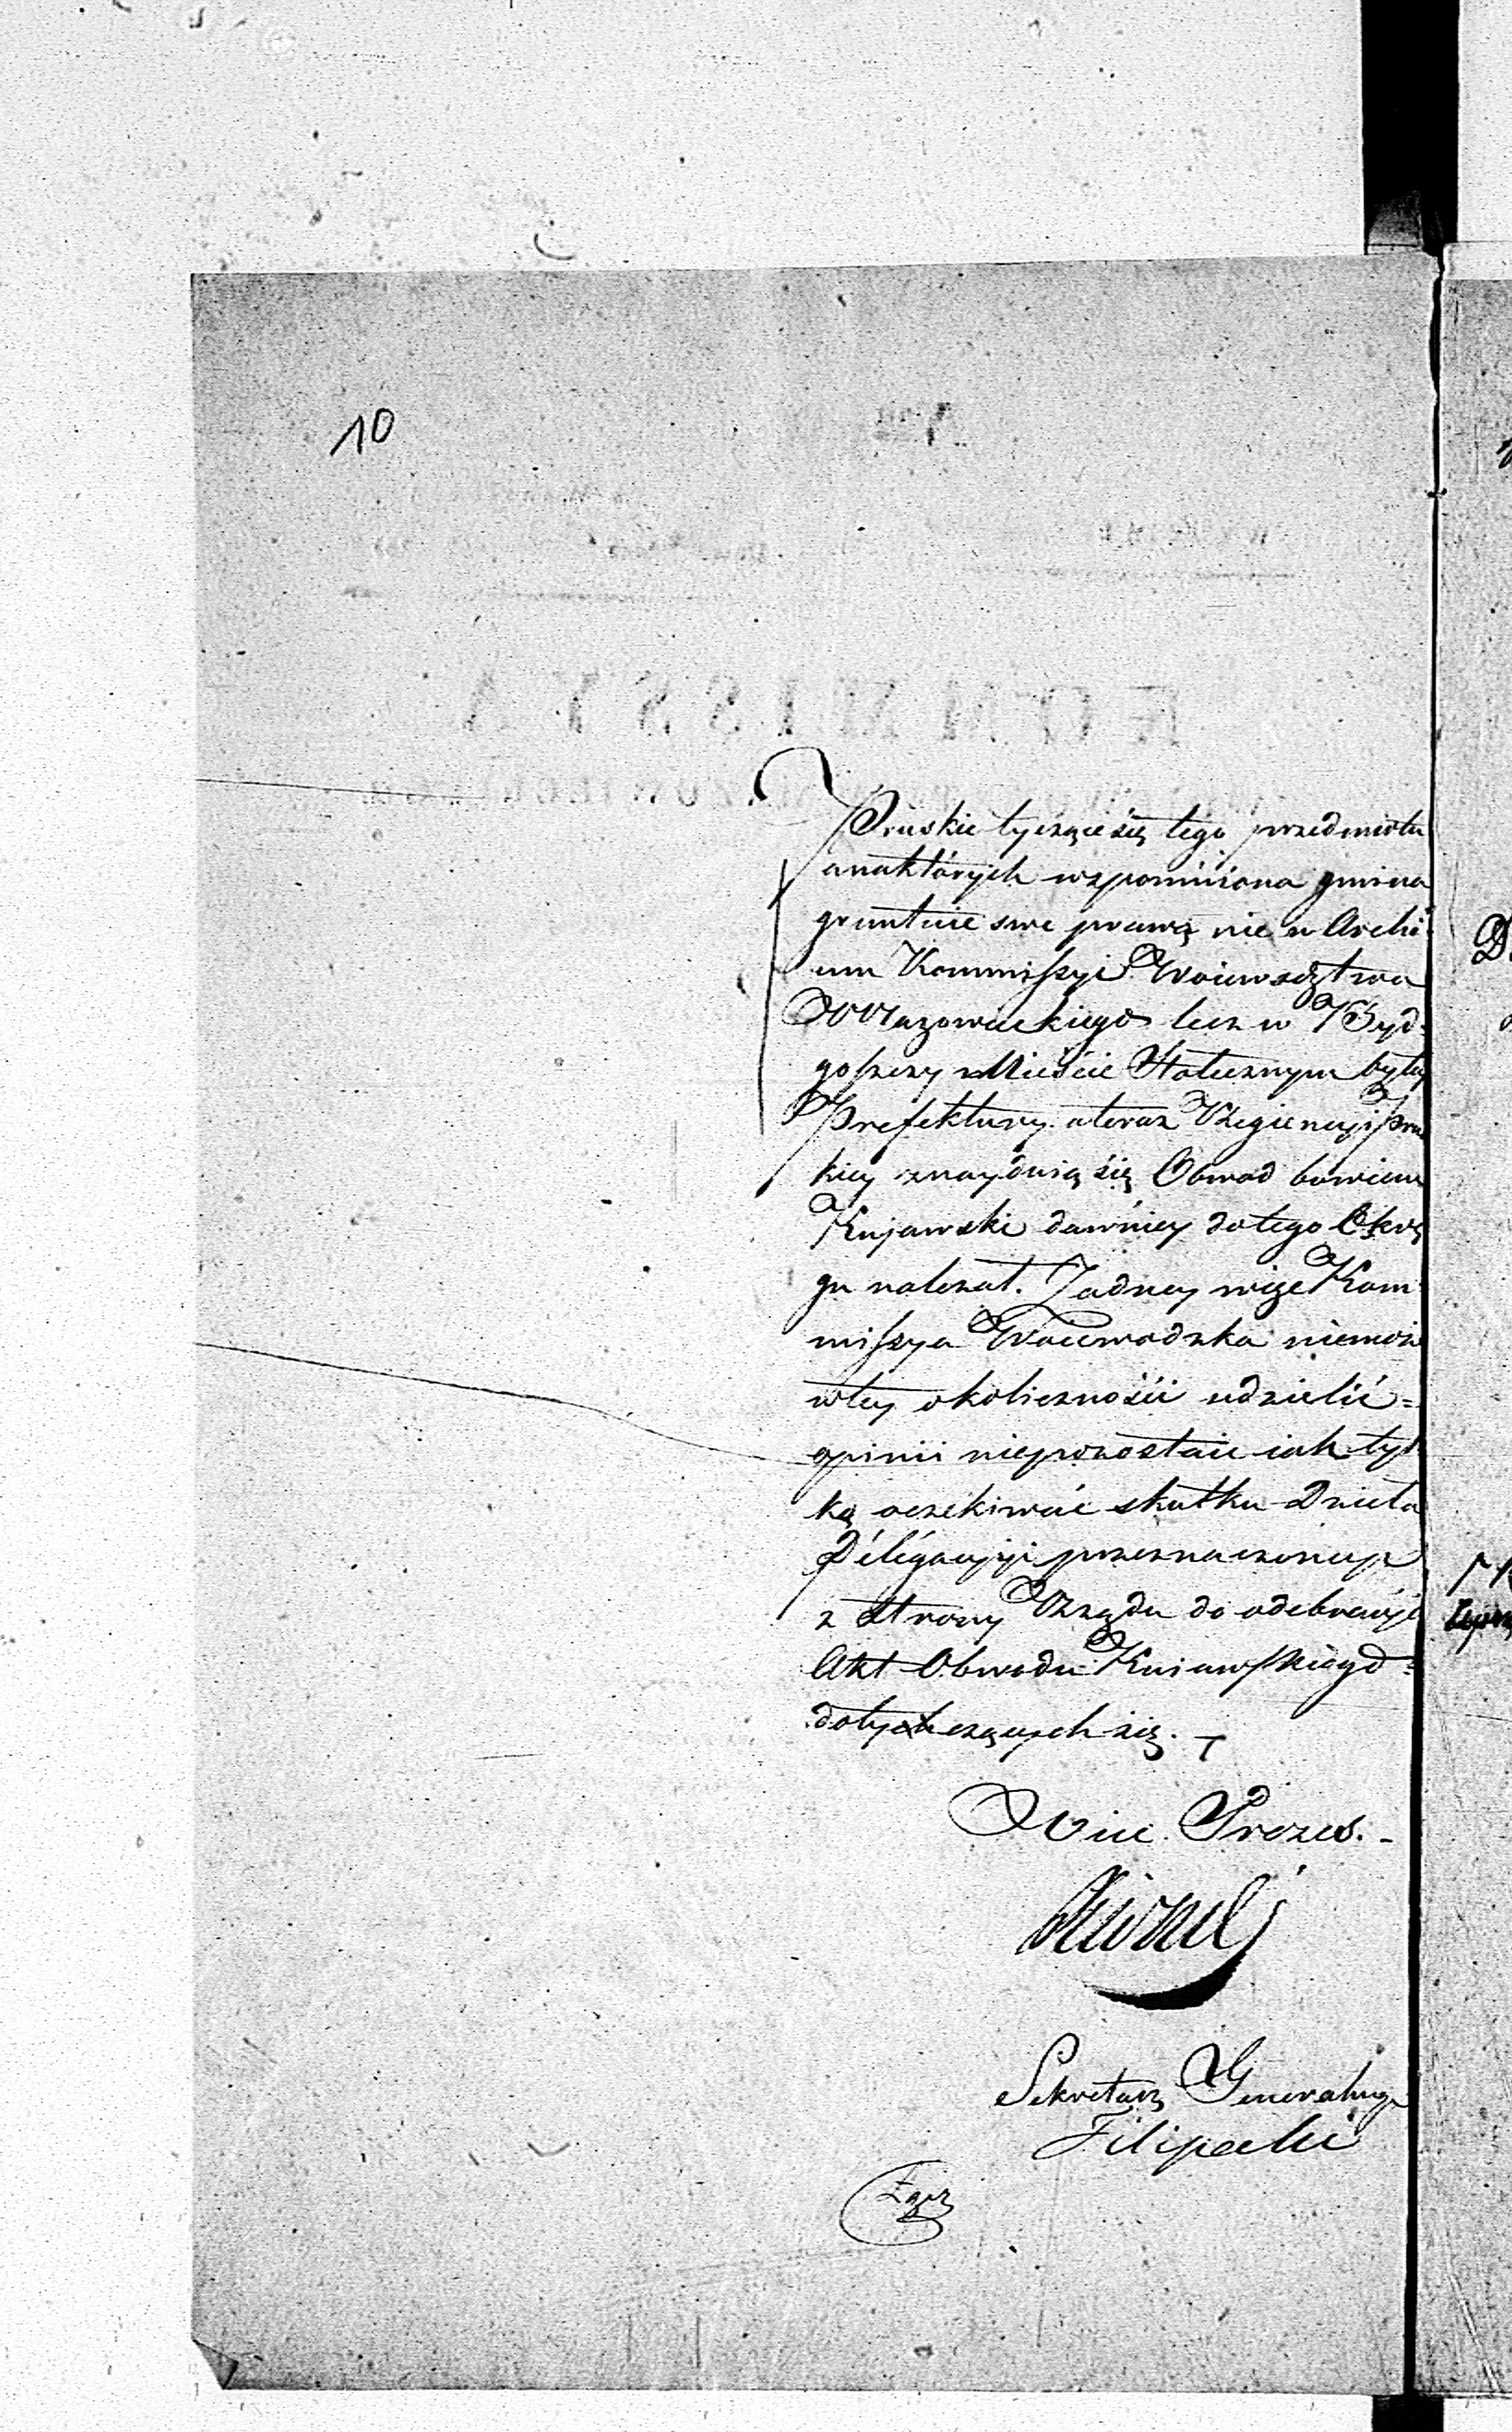 10
Pruskie tyczące się tego przedmiotu
a na których wspomniona gmina
gruntuie swe prawa nie w Archi
um Kommissyi Woiewodztwa
Mazowieckiego lecz w Byd-
goszczy w Mieście Stołecznym były
Prefektury a teraz Regiencyi Prus
kiey znayduią się Obwod bowiem
Kujawski dawniey do tego Okrę
gu należał. Żadney więc Kom
missya Woiewodzka niemoże
w tey okoliczności udzielić =
opinii niepozostaie iak tyl
ko oczekiwać skutku Dzieła
Delegacyji przeznaczoney
z Strony Rządu do odebrania
Akt Obwodu Kuiawskiego =
dotyczących się.
Vice Prezes.
Sekretarz Generalny
Filipecki